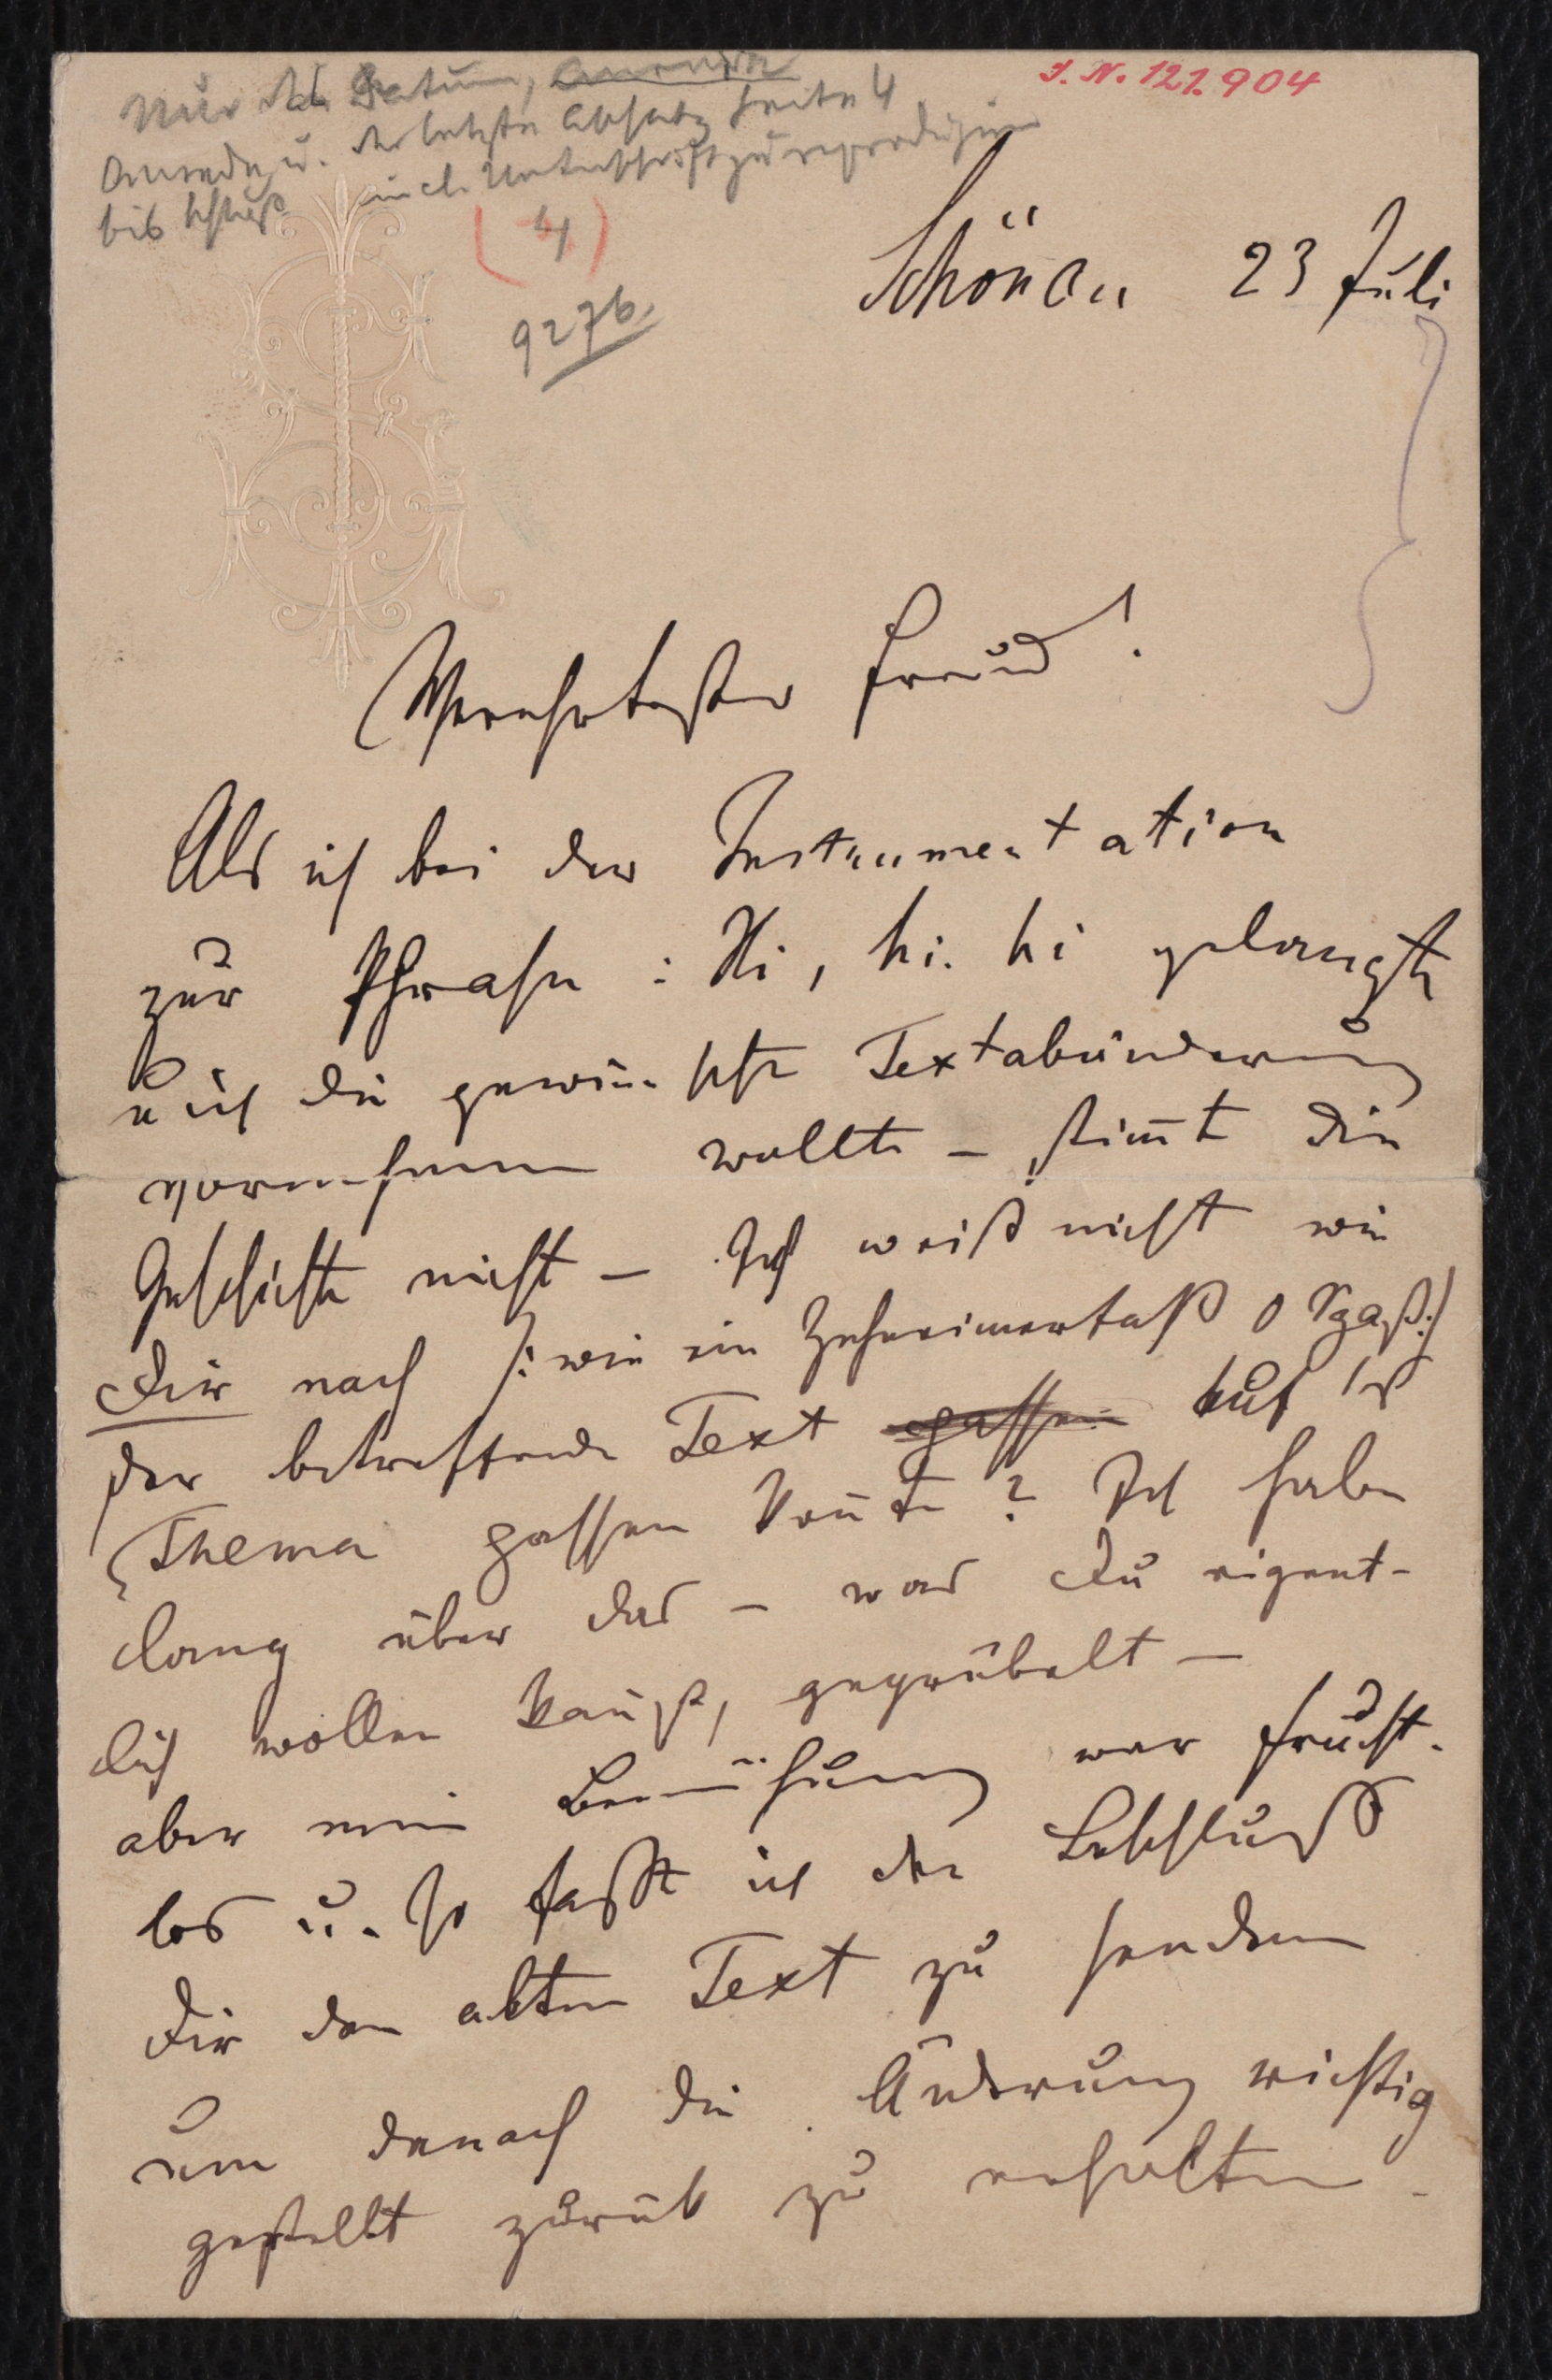 Nur das Datum,
Anrede, u. der letzte Absatz Seite 4
bis Schluß incl. Unterschrift zu reproduzieren
I. N. 121.904
(4)
9276.
Schönau 23 Juli
Verehrtester Freund!
Als ich bei der Instrumentation
zur Phrase: Hi, hi. hi gelangte
u ich die gewünschte Textabänderung
vornehmen wollte – stimt die
Geschichte nicht – Ich weiß nicht wie
Dir nach /: wie ein o Spaß :/
der betreffende Text passen auf das
Thema passen konnte? Ich habe
lang über das – was Du eigent-
lich wollen kannst, gegrübelt –
aber meine Bemühung war frucht-
los u. so faßte ich den Beschluß
Dir den alten Text zu senden
um danach die Änderung richtig
gestellt zurück zu erhalten –